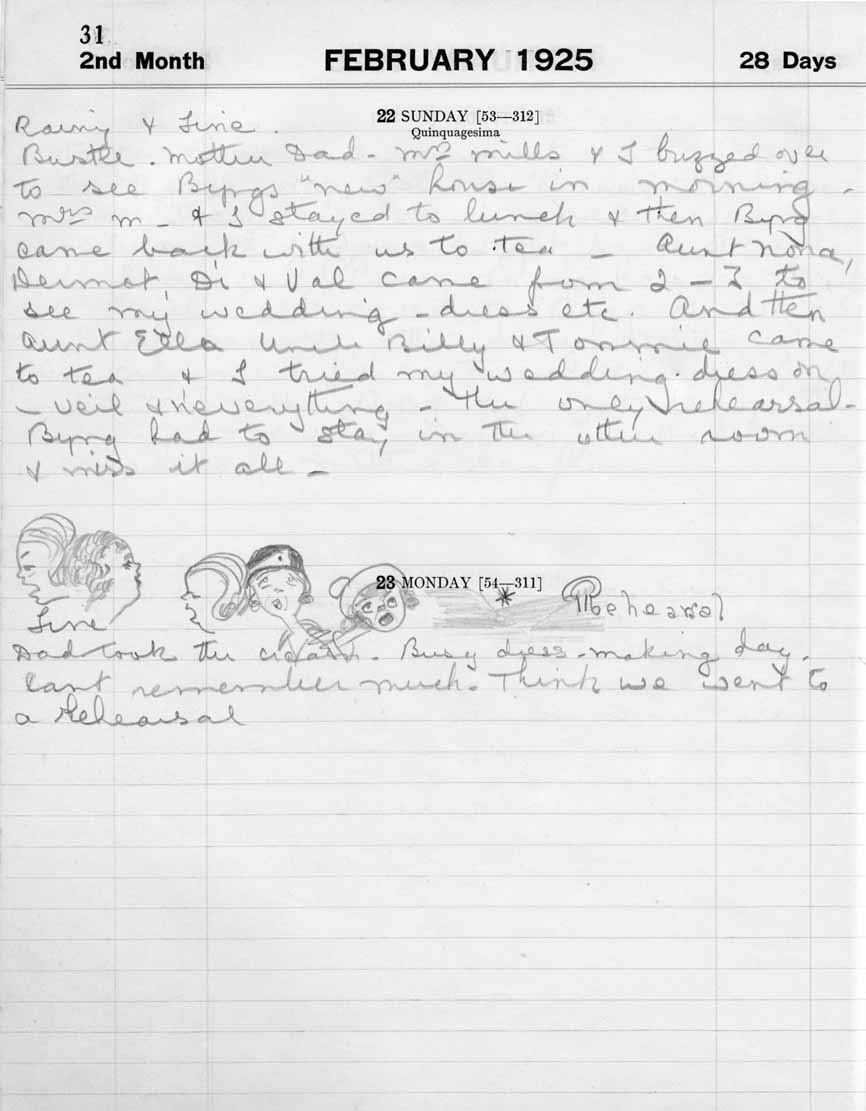 31
2nd Month FEBRUARY 1925 28 Days
22 SUNDAY [53—312]
Quinquagesima
Rainy & Fine.
Bustle. Mother Dad - Mrs Mills & I buzzed over
to see Byng's "new" house in morning -
Mrs M - & I stayed to lunch & then Byng
came back with us to tea - Aunt Nora,
Dermot, Di & Val came from 2 - 3 to
see my wedding-dress etc. And then
Aunt Ella Uncle Billy & Tommie came
to tea & I tried my wedding-dress on
- veil & everything - the only rehearsal -
Byng had to stay in the other room
& miss it all -
23 MONDAY [54—311]
* Rehearsal
Fine
Dad took the. Busy dress-making day.
Cant remember much. Think we went to
a Rehearsal